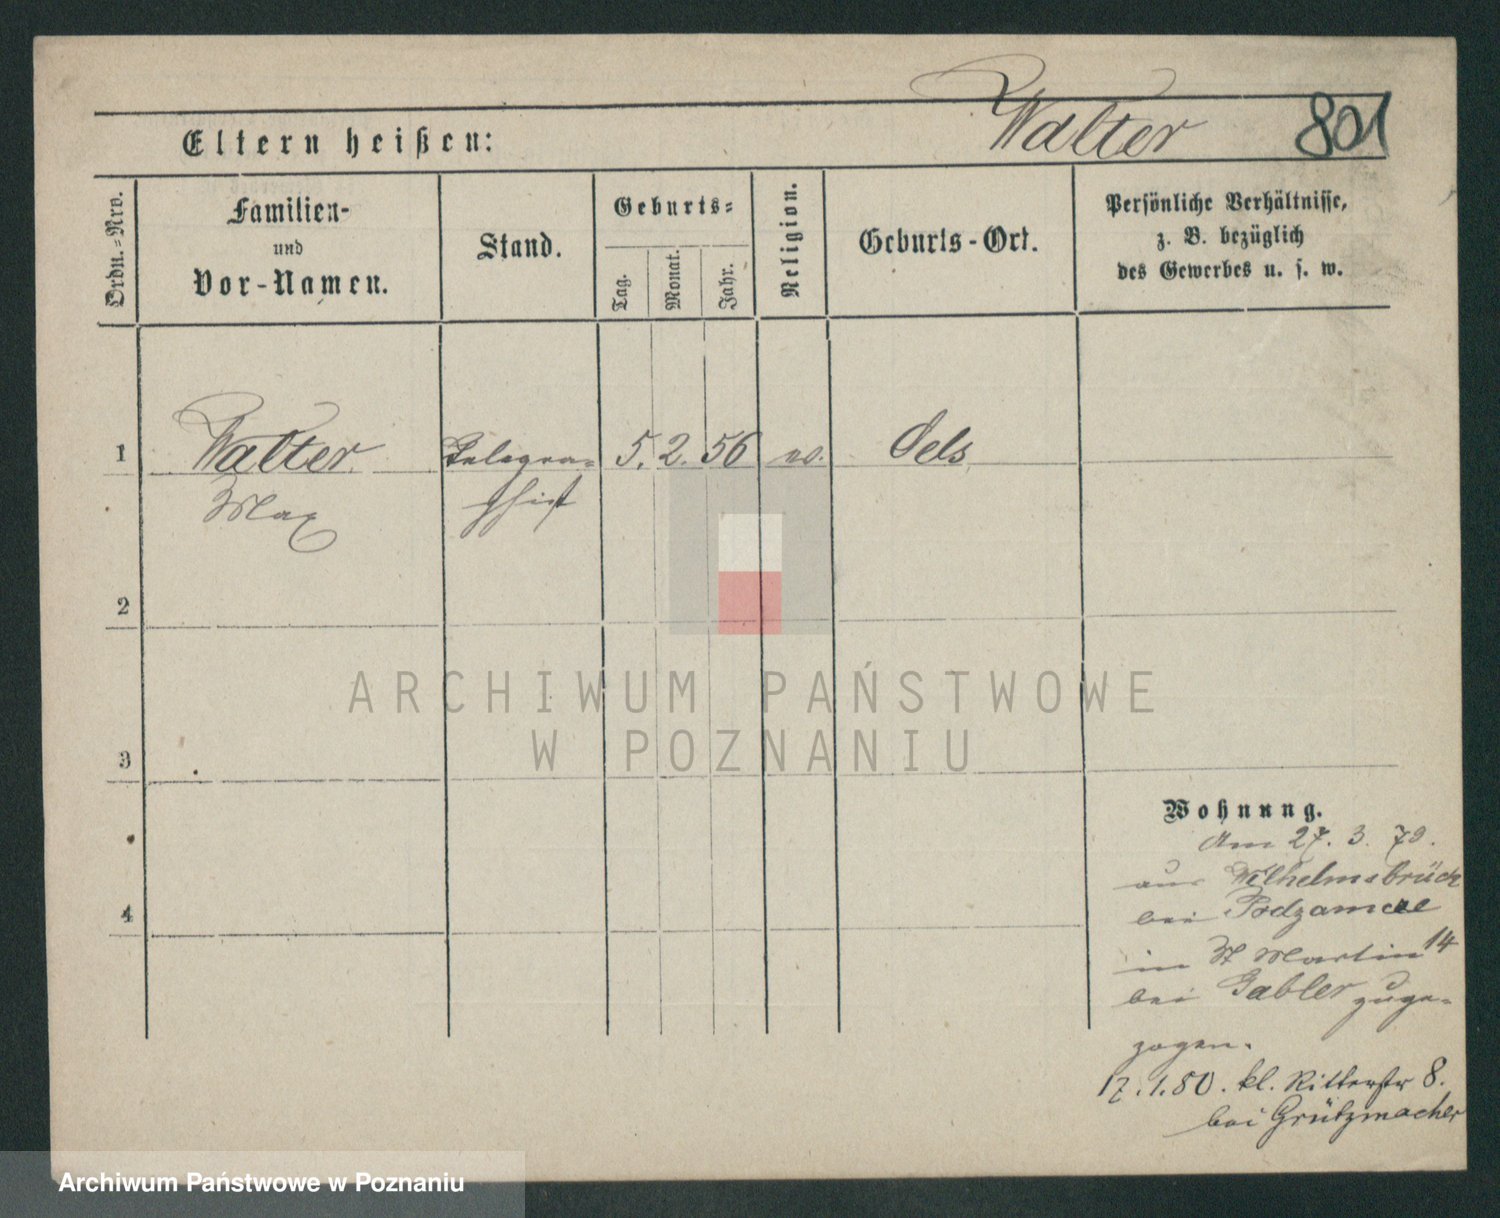 Walter 801
Eltern heißen:
Ordn.-Nro.
Familien-
und
Vor-Namen.
Stand.
Geburts-
Tag.
Monat.
Jahr.
Religion.
Geburts-Ort.
Persönliche Verhältnisse,
z. B. bezüglich
des Gewerbes u. s. w.
1 Walter Telegra- 5. 2. 56 ev. Oels
Max phist
2
ARCHIWUM PAŃSTWOWE
W POZNANIU
3
4
Wohnung.
Am 27. 3. 79.
aus Wilhelmsbrück
bei Podzamcze
in St Martin 14
bei Gabler zuge-
zogen.
17.1.80. kl. Ritterstr 8.
bei Grützmacher
Archiwum Państwowe w Poznaniu